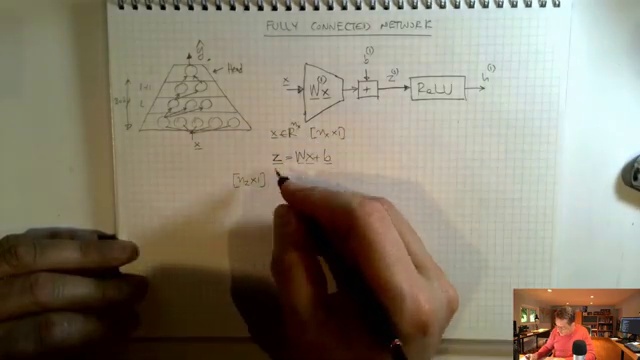 FULLY CONNECTED NETWORK
Head
L+1
L
x
x
W x
+
b(1)
z(1)
ReLU
h(1)
x ∈ R^nx [nx×1]
z = Wx + b
[nz×1]